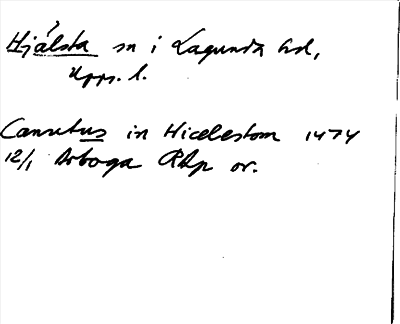 Hjälsta sn i Lagunda hd,
Upps. l.
Canutus in Hicelestom 1474
12/1 Arboga RAp or.